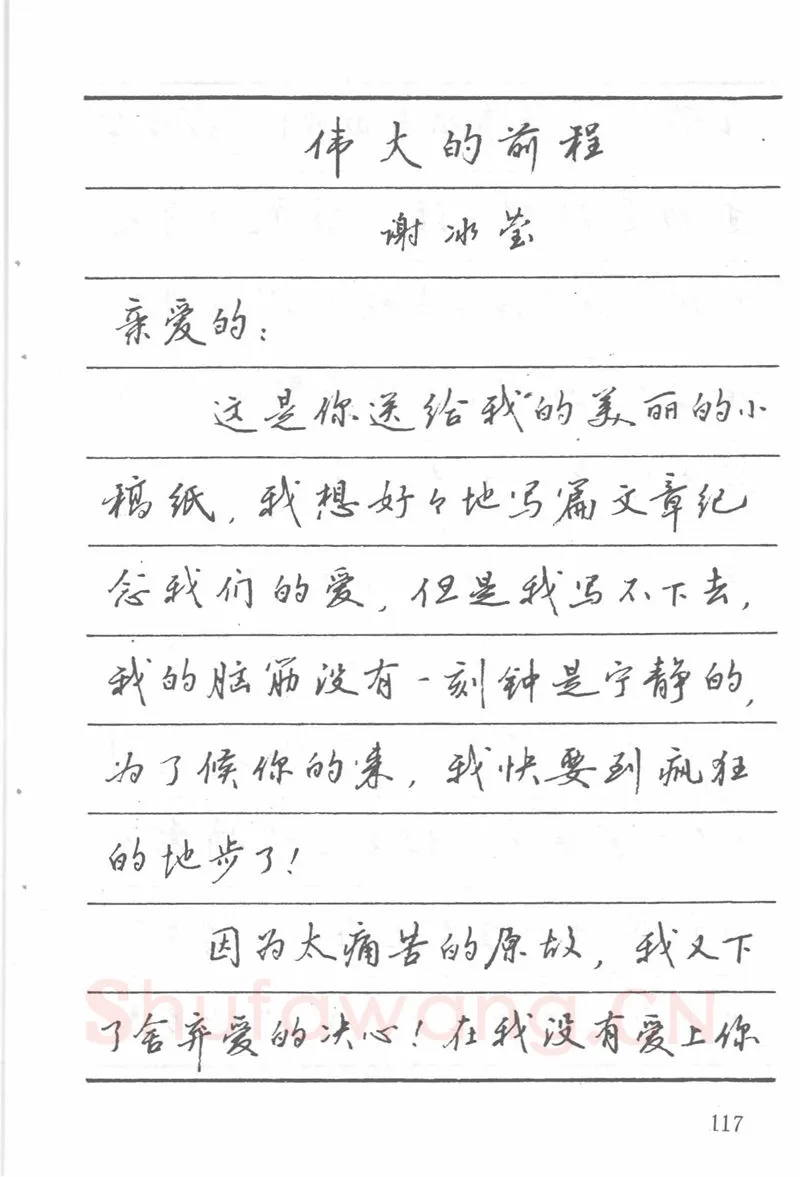 伟大的前程
谢冰莹
亲爱的：
这是你送给我的美丽的小
稿纸，我想好々地写篇文章纪
念我们的爱，但是我写不下去，
我的脑筋没有一刻钟是宁静的，
为了候你的来，我快要到疯狂
的地步了！
因为太痛苦的原故，我又下
了舍弃爱的决心！在我没有爱上你
Shufawang.CN
117